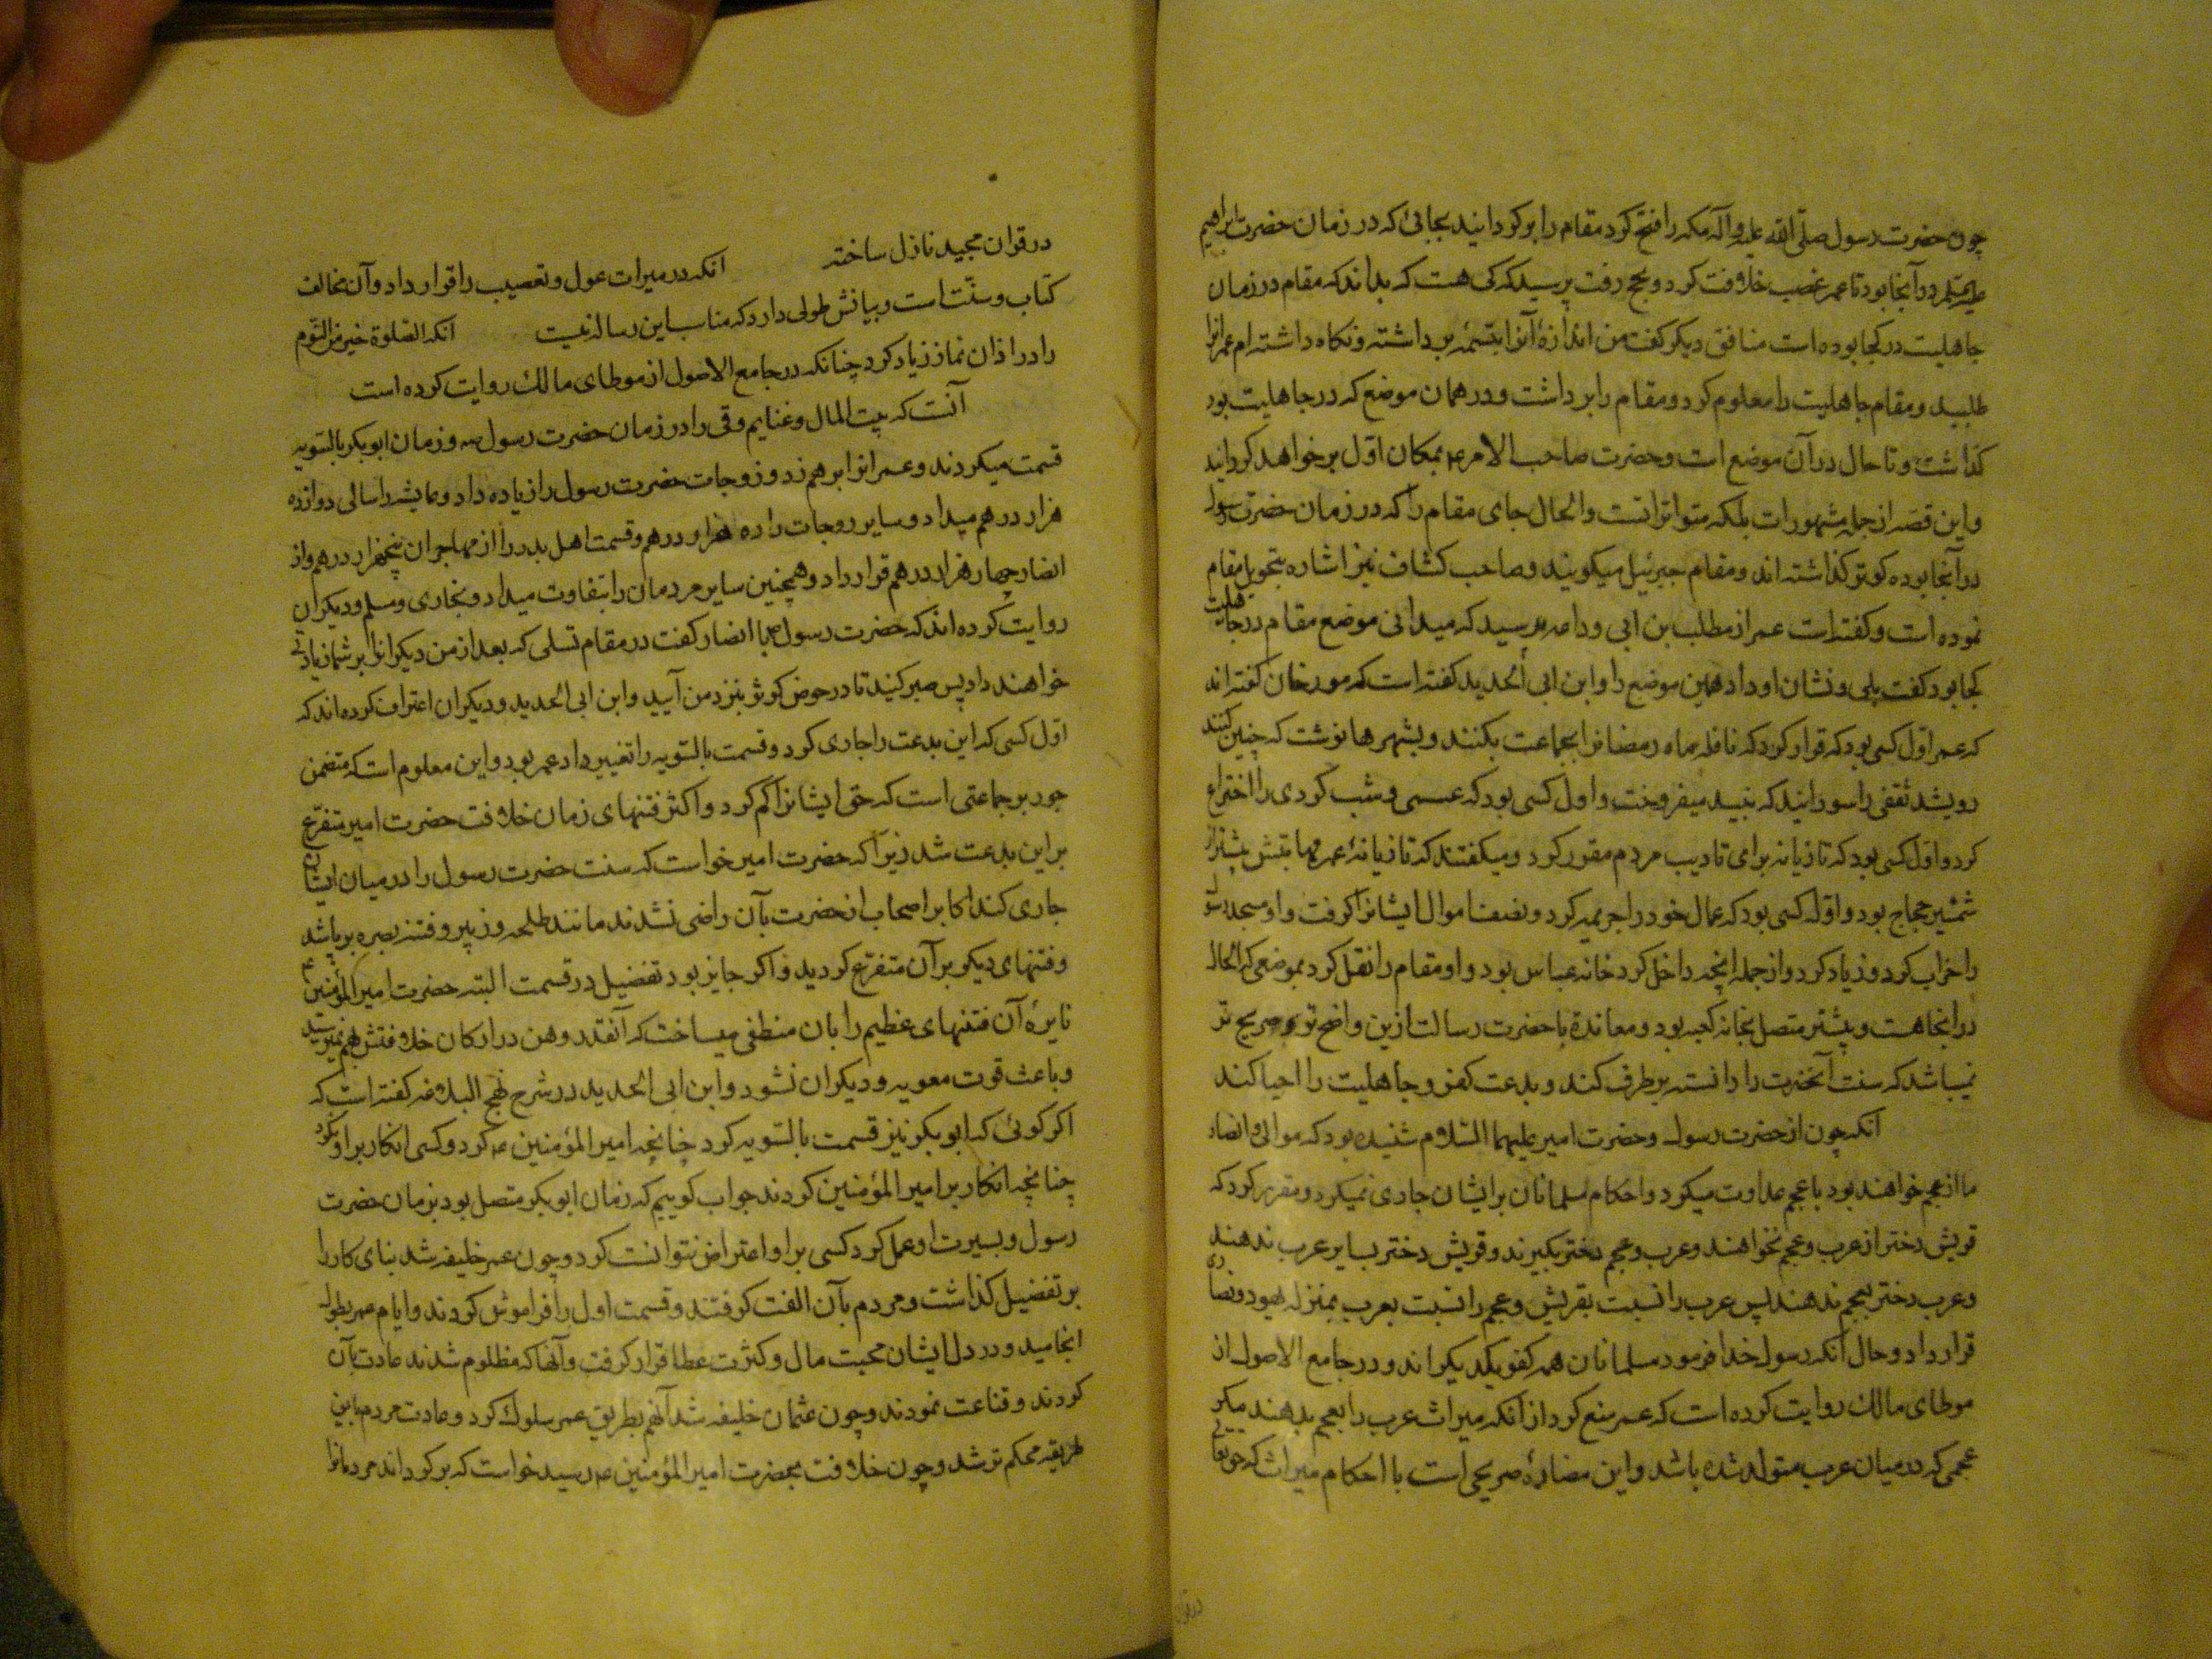 چون حضرت رسول صلّی الله علیه وآله مکه را فتح کرد مقام را برکردانید بجائی که در زمان حضرت ابراهیم
در آنجا بود تا عمر غصب خلافت کرد و بحج رفت پرسید که کی هست که بداند که مقام در زمان
جاهلیت در کجا بوده است منافق دیکر کفت من اندازهٔ آنرا بتسمه برداشته و نکاه داشته ام عمر انرا
طلبید و مقام جاهلیت را معلوم کرد و مقام را برداشت و در همان موضع که در جاهلیت بود
کذاشت و تا حال در آن موضع است و حضرت صاحب الامر ع بمکان اوّل بر خواهد کردانید
و این قصّه از جمله مشهورات بلکه متواترانست و الحال جای مقام را که در زمان حضرت رسول
در آنجا بوده کوتر کذاشته اند و مقام جبرئیل میکویند و صاحب کشاف نیز اشاره بتحویل مقام
نموده است و کفته است عمر از مطلب بن ابی وداعه پرسید که میدانی موضع مقام در جاهلیت
کجا بود کفت بلی و نشان او داد همین موضع را و ابن ابی الحدید کفته است که مورخان کفته اند
که عمر اوّل کسی بود که قرار کرد که نافله ماه رمضانرا بجماعت بکنند و بشهرها نوشت که چنین کنند
رویشد ثقفی را سورانید که نبید میفروخت و اول کسی بود که عسسی و شب کردی را اختراع
کرد و اوّل کسی بود که تازیانه برای تادیب مردم مقرر کرد و میکفتند که تازیانهٔ عمر مهابتش بیشتر از
شمشیر حجاج بود و اوّل کسی بود که عمال خود را جریمه کرد و نصف اموال ایشانرا کرفت و او مسجد رسول
را خراب کرد و زیاد کرد و از جمله انچه داخل کرد خانه عباس بود و او مقام را نقل کرد بموضعی که الحال
در انجا هست و پیشتر متصل بخانه کعبه بود و معاندة با حضرت رسالت ازین واضح تر و صریح تر
نمیباشد که سنت آنحضرت را دانسته برطرف کند و بدعت کفر و جاهلیت را احیا کند
انکه چون از حضرت رسول و حضرت امیر علیهما السّلام شنیده بود که موالی و انصار
ما از عجم خواهند بود با عجم عداوت میکرد و احکام مسلمانان بر ایشان جاری نمیکرد و مقرر کرد که
قریش دختر از عرب و عجم نخواهند و عرب و عجم دختر بکیرند و قریش دختر بسایر عرب ندهند
و عرب دختر بعجم ندهند پس عرب را نسبت بقریش و عجم را نسبت بعرب بمنزله یهود و نصاری
قرار داد و حال آنکه رسول خدا فرمود مسلمانان همه کفو یکدیکراند و در جامع الاصول از
موطای مالک روایت کرده است که عمر منع کرد از آنکه میراث عرب را بعجم بدهند میکر
عجمی که در میان عرب متولد شده باشد و این مضادهٔ صریحی است با احکام میراث که حق تعالی
در قران مجید نازل ساخته انکه در میراث عول و تعصیب را قرار داد و آن مخالف
کتاب و سنّت است و بیانش طولی دارد که مناسب این رساله نیست انکه الصّلوة خیر من النّوم
را در اذان نماز زیاد کرد چنانکه در جامع الاصول از موطای مالک روایت کرده است
آنست که بیت المال و غنایم و فی را در زمان حضرت رسول ص و زمان ابو بکر بالسّویه
قسمت میکردند و عمر انرا بر هم زد و زوجات حضرت رسول را زیاده داد و عایشه را سالی دوازده
هزار درهم میداد و سایر زوجات را ده هزار درهم و قسمت اهل بدر را از مهاجران پنجهزار درهم و از
انصار چهار هزار درهم قرار داد و همچنین سایر مردمان را بتفاوت میداد و بخاری و مسلم و دیکران
روایت کرده اند که حضرت رسول ص با انصار کفت در مقام تسلی که بعد از من دیکرانرا بر شما زیادتی
خواهند داد پس صبر کنید تا در حوض کوثر بنزد من آیید و ابن ابی الحدید و دیکران اعتراف کرده اند که
اوّل کسی که این بدعت را جاری کرد و قسمت بالسّویه را تغییر داد عمر بود و این معلوم است که متضمن
جور بر جماعتی است که حق ایشانرا کم کرد و اکثر فتنهای زمان خلافت حضرت امیر متفرّع
بر این بدعت شد زیرا که حضرت امیر خواست که سنت حضرت رسول را در میان ایشان
جاری کند اکابر اصحاب انحضرت بآن راضی نشدند مانند طلحه و زبیر و فتنه بصره برپا شد
و فتنهای دیکر بر آن متفرّع کردید و اکر جایز بود تفضیل در قسمت البته حضرت امیر المؤمنین ع
نایرهٔ آن فتنهای عظیم را بان منطفی میساخت که آنقدر وهن در ارکان خلافتش هم نمیرسید
و باعث قوت معویه و دیکران نشود و ابن ابی الحدید در شرح نهج البلاغه کفته است که
اکر کوئی که ابو بکر نیز قسمت بالسّویه کرد چنانچه امیر المؤمنین ع کرد و کسی انکار بر او نکرد
چنانچه انکار بر امیر المؤمنین کردند جواب کوییم که زمان ابو بکر متصل بود بزمان حضرت
رسول و بسیرت او عمل کرد کسی بر او اعتراض نتوانست کرد و چون عمر خلیفه شد بنای کار را
بر تفضیل کذاشت و مردم بآن الفت کرفتند و قسمت اول را فراموش کردند و ایام عمر بطول
انجامید و در دل ایشان محبت مال و کثرت عطا قرار کرفت و آنها که مظلوم شدند عادت بآن
کردند و قناعت نمودند و چون عثمان خلیفه شد آنهم بطریق عمر سلوک کرد و عادت مردم باین
طریقه محکم تر شد و چون خلافت بحضرت امیر المؤمنین ع رسید خواست که برکرداند مردمانرا